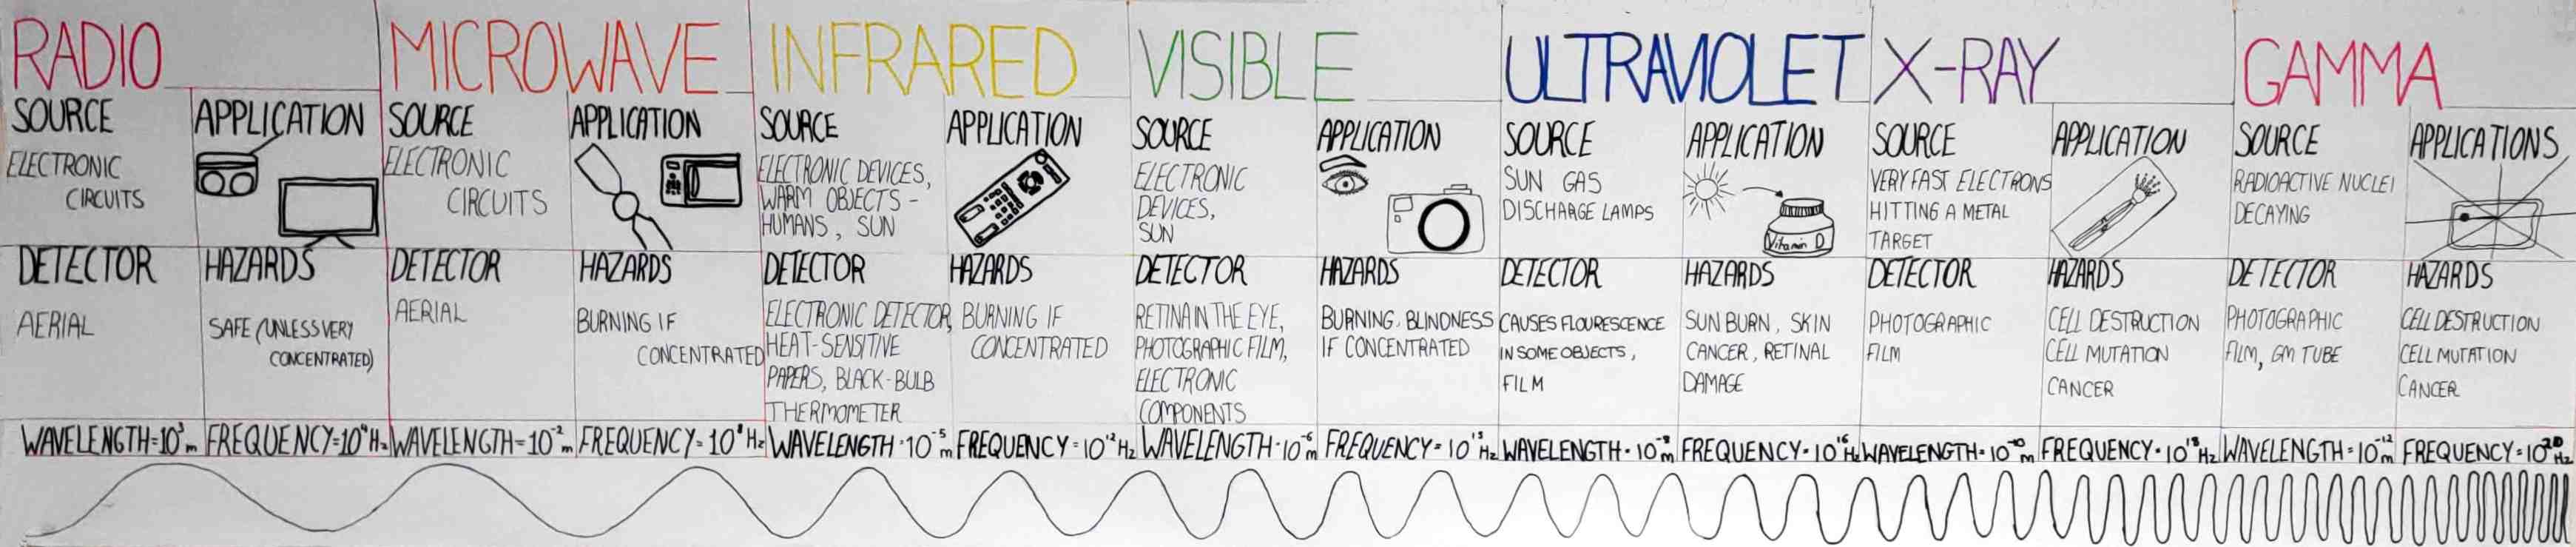 RADIO
MICROWAVE
INFRARED
VISIBLE
ULTRAVIOLET
X-RAY
GAMMA
SOURCE
ELECTRONIC
CIRCUITS
APPLICATION
SOURCE
ELECTRONIC
CIRCUITS
APPLICATION
SOURCE
ELECTRONIC DEVICES,
WARM OBJECTS -
HUMANS, SUN
APPLICATION
SOURCE
ELECTRONIC
DEVICES,
SUN
APPLICATION
SOURCE
SUN GAS
DISCHARGE LAMPS
APPLICATION
Vitamin D
SOURCE
VERY FAST ELECTRONS
HITTING A METAL
TARGET
APPLICATION
SOURCE
RADIOACTIVE NUCLEI
DECAYING
APPLICATIONS
DETECTOR
AERIAL
HAZARDS
SAFE (UNLESS VERY
CONCENTRATED)
DETECTOR
AERIAL
HAZARDS
BURNING IF
CONCENTRATED
DETECTOR
ELECTRONIC DETECTOR,
HEAT-SENSITIVE
PAPERS, BLACK-BULB
THERMOMETER
HAZARDS
BURNING IF
CONCENTRATED
DETECTOR
RETINA IN THE EYE,
PHOTOGRAPHIC FILM,
ELECTRONIC
COMPONENTS
HAZARDS
BURNING, BLINDNESS
IF CONCENTRATED
DETECTOR
CAUSES FLOURESCENCE
IN SOME OBJECTS,
FILM
HAZARDS
SUN BURN, SKIN
CANCER, RETINAL
DAMAGE
DETECTOR
PHOTOGRAPHIC
FILM
HAZARDS
CELL DESTRUCTION
CELL MUTATION
CANCER
DETECTOR
PHOTOGRAPHIC
FILM, GM TUBE
HAZARDS
CELL DESTRUCTION
CELL MUTATION
CANCER
WAVELENGTH=10³m
FREQUENCY=10⁴Hz
WAVELENGTH=10⁻²m
FREQUENCY=10⁸Hz
WAVELENGTH=10⁻⁵m
FREQUENCY=10¹²Hz
WAVELENGTH=10⁻⁶m
FREQUENCY=10¹⁵Hz
WAVELENGTH=10⁻⁸m
FREQUENCY=10¹⁶Hz
WAVELENGTH=10⁻¹⁰m
FREQUENCY=10¹⁸Hz
WAVELENGTH=10⁻¹²m
FREQUENCY=10²⁰Hz